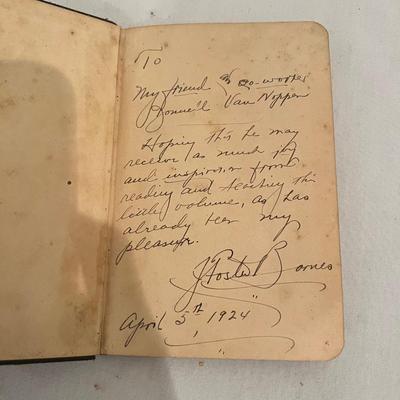 To
My friend & co-worker
Donnell Van Noppen
Hoping this he may
receive as much joy
and inspiration from
reading and teaching this
little volume, as has
already been my
pleasure.
J Foster Barnes
April 5th, 1924